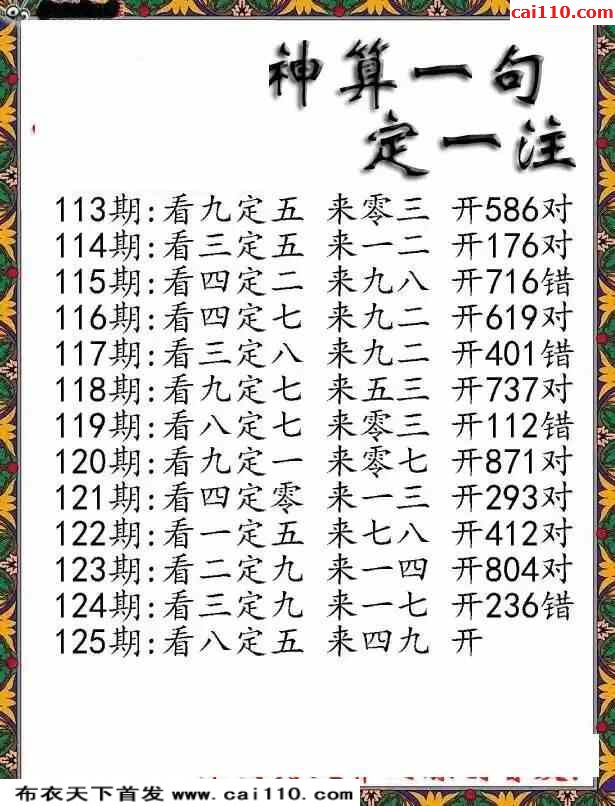 cai110.com
神算一句
定一注
113期:看九定五 来零三 开586对
114期:看三定五 来一二 开176对
115期:看四定二 来九八 开716错
116期:看四定七 来九二 开619对
117期:看三定八 来九二 开401错
118期:看九定七 来五三 开737对
119期:看八定七 来零三 开112错
120期:看九定一 来零七 开871对
121期:看四定零 来一三 开293对
122期:看一定五 来七八 开412对
123期:看二定九 来一四 开804对
124期:看三定九 来一七 开236错
125期:看八定五 来四九 开
布衣天下首发 www.cai110.com